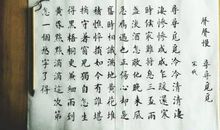 聲聲慢 尋尋覓覓
宋
尋尋覓覓冷冷清清淒
淒慘慘戚戚乍暖還寒
時候最難將息三盃兩
盞淡酒怎敵他晚來風
急雁過也正傷心卻是
舊時相識滿地黃花堆
積憔悴損如今有誰堪
摘守著窗兒獨自怎生
得黑梧桐更兼細雨到
黃昏點點滴滴這次第
怎一個愁字了得